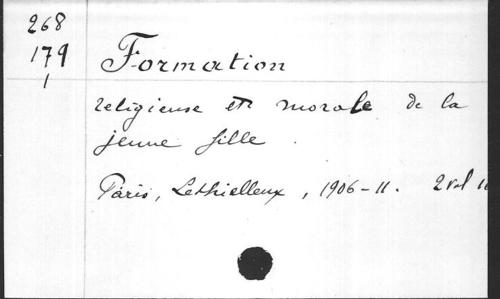 268
179
1
Formation
religieuse et morale de la
jeune fille.
Paris, Lethielleux, 1906-11. 2 vol